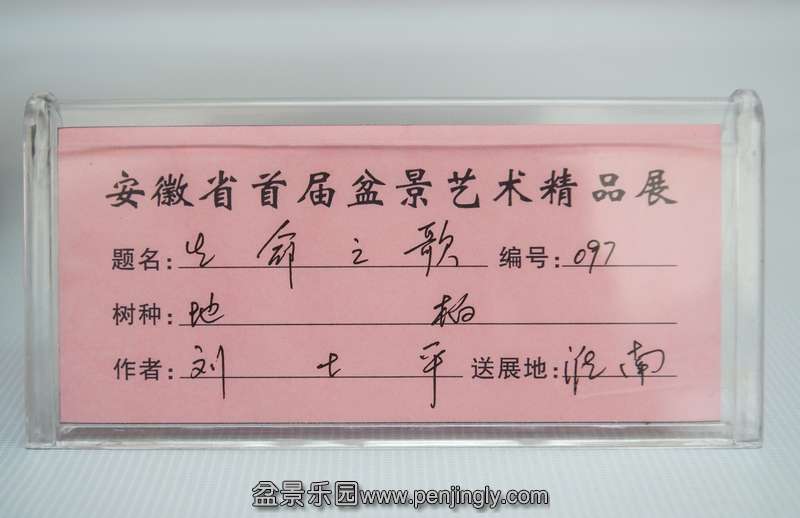 安徽省首届盆景艺术精品展
题名: 生命之歌 编号: 097
树种: 地柏
作者: 刘士平 送展地: 淮南
盆景乐园www.penjingly.com